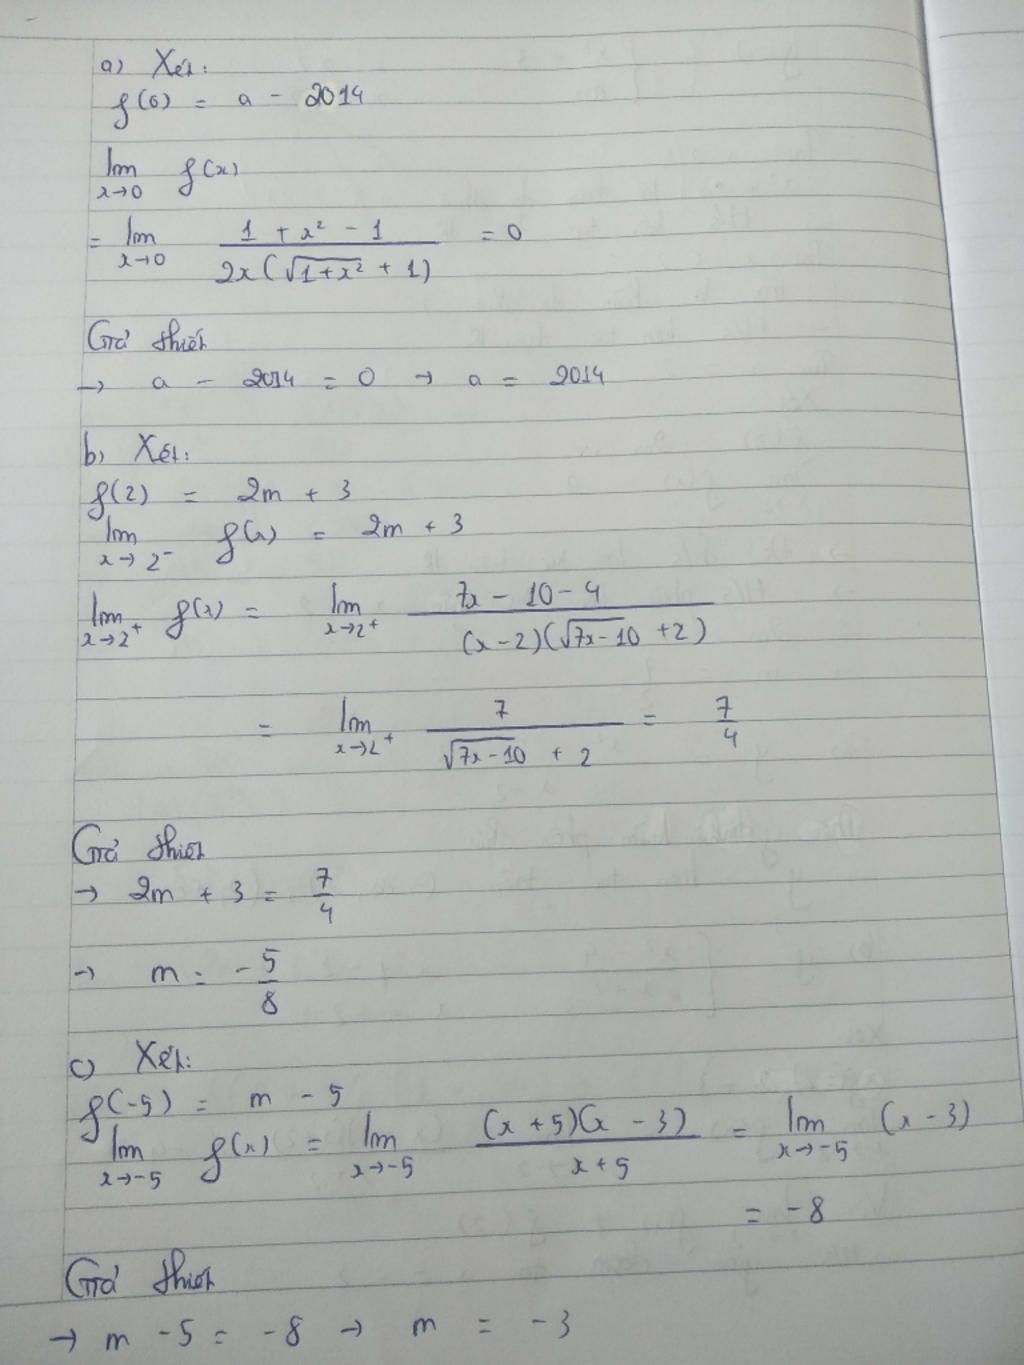 a) Xét:
f(0) = a - 2014
lim x→0 f(x)
= lim x→0 (1 + x² - 1) / (2x(√(1+x²) + 1)) = 0
Giả thiết
→ a - 2014 = 0 → a = 2014
b) Xét:
f(2) = 2m + 3
lim x→2⁻ f(x) = 2m + 3
lim x→2⁺ f(x) = lim x→2⁺ (7x - 10 - 4) / ((x-2)(√(7x-10) + 2))
= lim x→2⁺ 7 / (√(7x-10) + 2) = 7/4
Giả thiết
→ 2m + 3 = 7/4
→ m = -5/8
c) Xét:
f(-5) = m - 5
lim x→-5 f(x) = lim x→-5 ((x+5)(x-3)) / (x+5) = lim x→-5 (x-3)
= -8
Giả thiết
→ m - 5 = -8 → m = -3